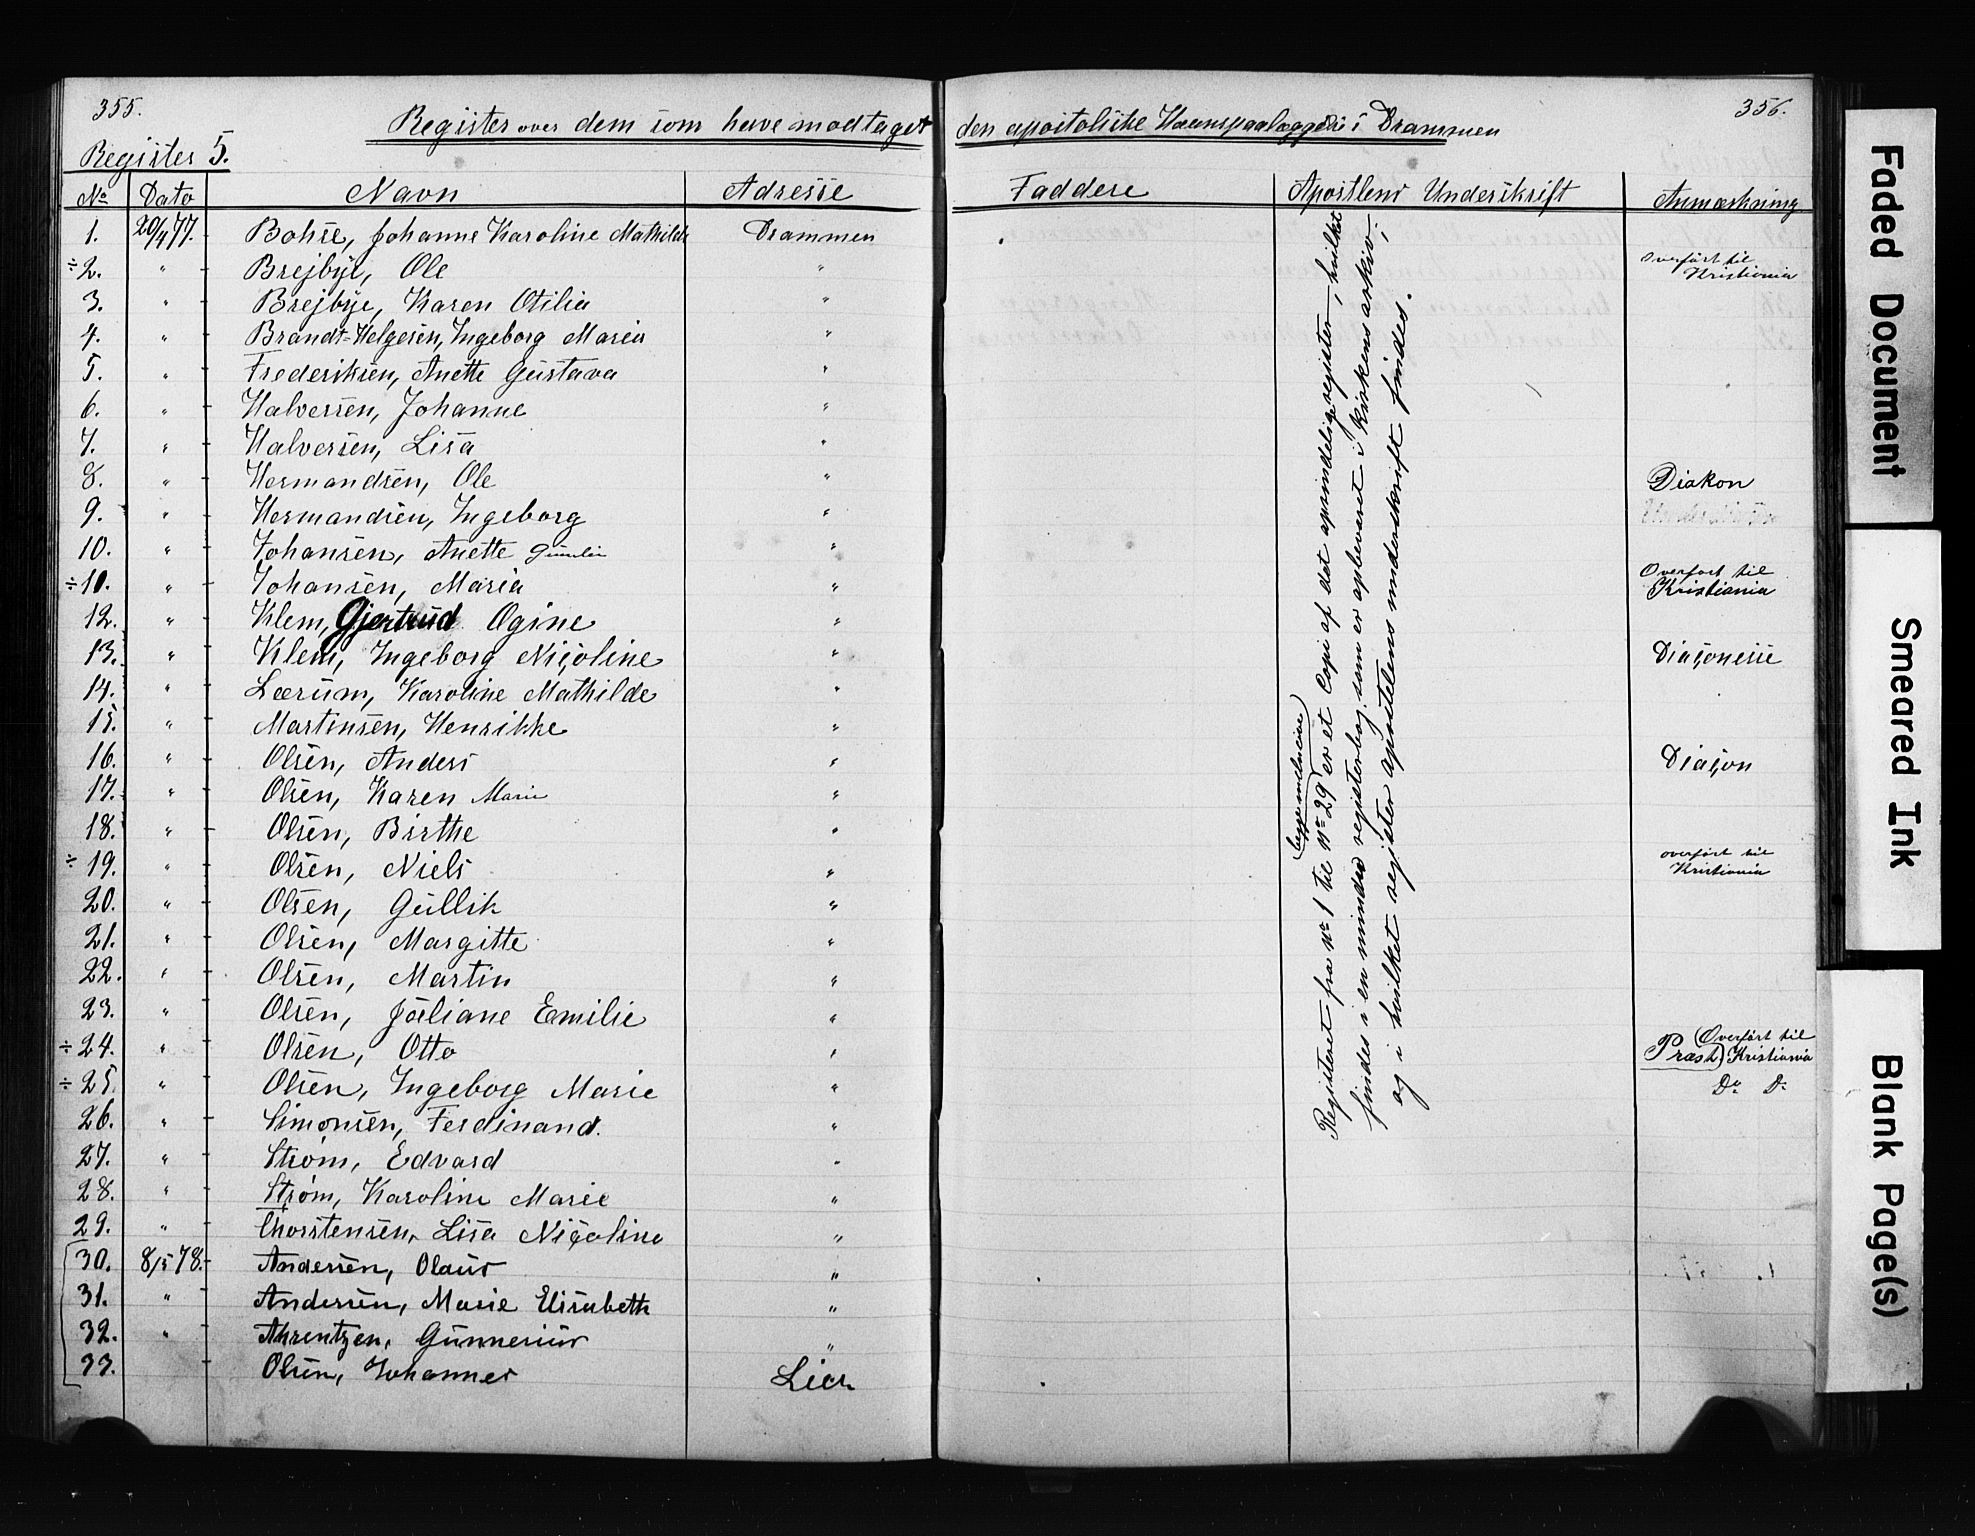 355.
356.
Register over dem som have modtaget den apostoliske Haanspaalæggelse i Drammen
Register 5.
No Dato Navn Adresse Faddere Apostlens Underskrift Anmærkning
1. 20/4 77. Bohse, Johanne Karoline Mathilde Drammen
÷ 2. " Brejbye, Ole " Overført til Kristiania
3. " Brejbye, Karen Otilia "
4. " Brandt=Helgesen, Ingeborg Maria "
5. " Frederiksen, Anette Gustava "
6. " Halversen, Johanne "
7. " Halversen, Lisa "
8. " Hermandsen, Ole " Diakon
9. " Hermandsen, Ingeborg "
10. " Johansen, Anette "
÷ 10. " Johansen, Maria " Overført til Kristiania
12. " Klem, Gjertrud Ogine "
13. " Klem, Ingeborg Niçoline " Diaçonesse
14. " Lærum, Karoline Mathilde "
15. " Martinsen, Henrikke "
16. " Olsen, Anders " Diaçon
17. " Olsen, Karen Marie "
18. " Olsen, Birthe "
÷ 19. " Olsen, Niels " overført til Kristiania
20. " Olsen, Gullik "
21. " Olsen, Margitte "
22. " Olsen, Martin "
23. " Olsen, Juliane Emilie "
÷ 24. " Olsen, Otto " Præst (Overført til Kristiania
÷ 25. " Olsen, Ingeborg Marie " Do Do
26. " Simonsen, Ferdinand. "
27. " Strøm, Edvard "
28. " Strøm, Karoline Marie "
29. " Thorstensen, Lisa Niçoline "
30. 8/5 78. Andersen, Olaus "
31. " Andersen, Marie Elisabeth "
32. " Ahrentzen, Gunnerius "
33. Olsen, Johannes Lier
Registeret fra No 1 til No 29 (begge inclusive) er et Copi af det oprindelige register, hvilket
findes i en mindre registerbog som er opbevaret i Kirkens arkiv;
og i hvilket register apostelens underskrift findes.
Faded Document
Smeared Ink
Blank Page(s)